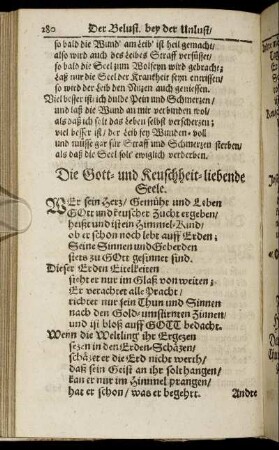 280 Der Belust. bey der Unlust/
so bald die Wund' am Leib' ist heil gemacht/
also wird auch des Leibes Straff versüsset/
so bald die Seel zum Wolseyn wird gebracht;
daß nur die Seel der Krankheit seyn entrissen/
so wird der Leib den Nutzen auch geniessen.
Viel besser ist: ich dulde Pein und Schmerzen/
und laß die Wund an mir verbinden wol/
als daß ich solt das Leben selbst verscherzen;
viel besser ist/ der Leib sey Wunden-voll
und müsse gar für Straff und Schmerzen sterben/
als daß die Seel solt' ewiglich verderben.
Die Gott- und Keuschheit-liebende
Seele.
WEr sein Herz/ Gemühte und Leben
GOtt und keuscher Zucht ergeben/
heist und ist ein Himmel-Kind/
ob er schon noch lebt auff Erden;
Seine Sinnen und Geberden
stets zu GOtt gesinnet sind.
Dieser Erden Eitelkeiten
sieht er nur im Glaß von weiten;
Er verachtet alle Pracht/
richtet nur sein Thun und Sinnen
nach den Gold-umstirnten Zinnen/
und ist bloß auff GOTT bedacht.
Wenn die Weltling' ihr Ergezen
sezen in den Erden-Schäzen/
schäzet er die Erd nicht werth/
daß sein Geist an ihr solt hangen/
kan er nur im Himmel prangen/
hat er schon/ was er begehrt.
Andre